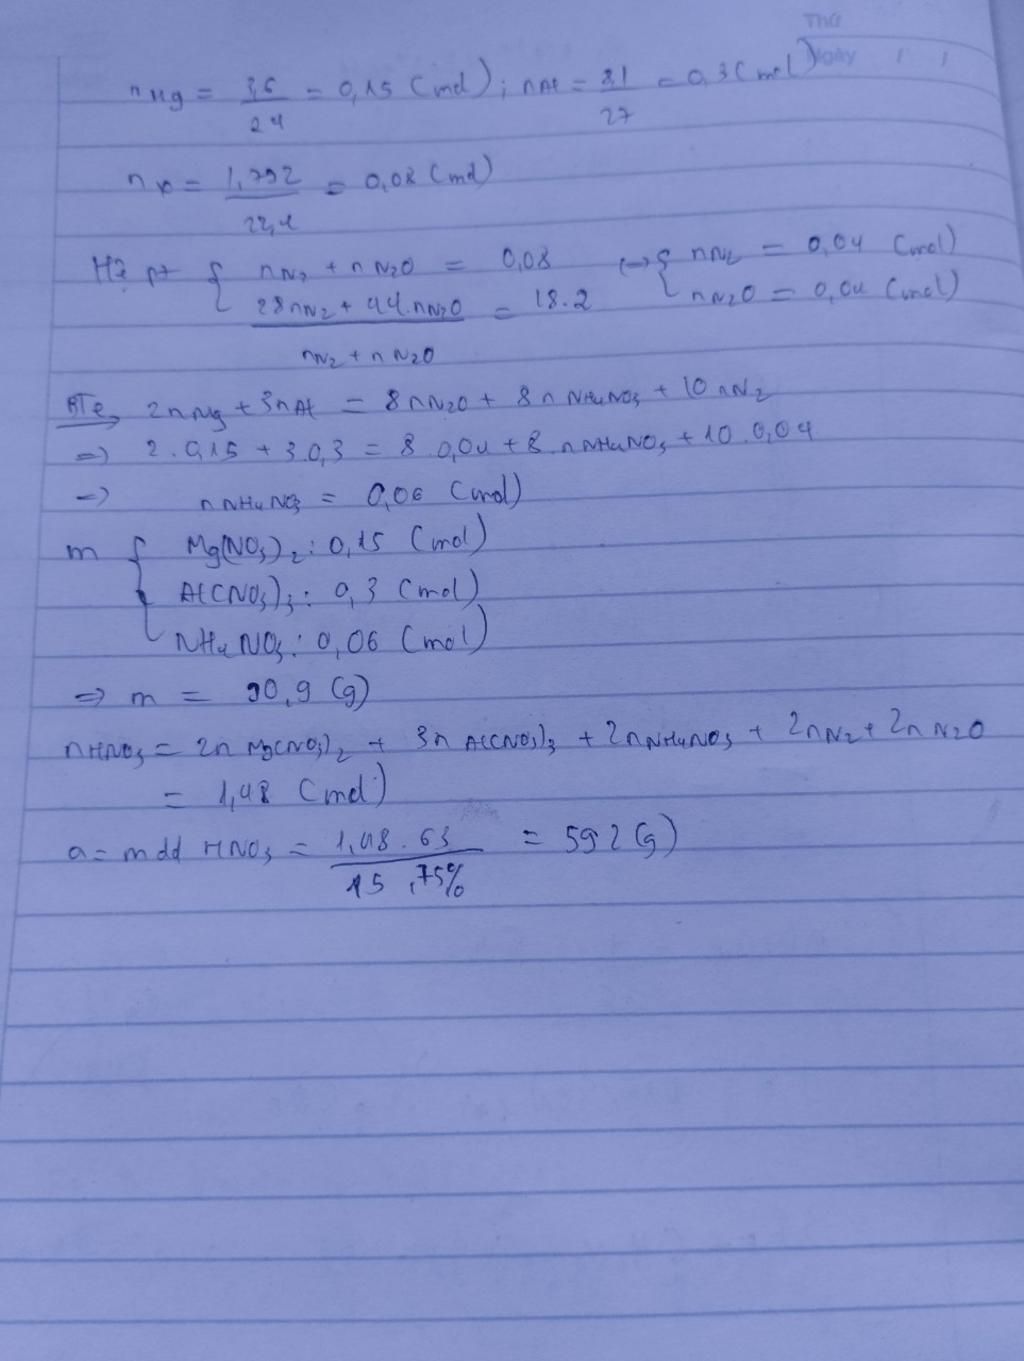 Thứ
Ngày / /
nMg = 3,6/24 = 0,15 (mol); nAl = 8,1/27 = 0,3 (mol)
nX = 1,792/22,4 = 0,08 (mol)
Hệ pt { nN2 + nN2O = 0,08 <=> { nN2 = 0,04 (mol)
(28nN2 + 44.nN2O)/(nN2 + nN2O) = 18.2 nN2O = 0,04 (mol)
BTe, 2nMg + 3nAl = 8nN2O + 8nNH4NO3 + 10nN2
=> 2.0,15 + 3.0,3 = 8.0,04 + 8.nNH4NO3 + 10.0,04
=> nNH4NO3 = 0,06 (mol)
m { Mg(NO3)2: 0,15 (mol)
Al(NO3)3: 0,3 (mol)
NH4NO3: 0,06 (mol)
=> m = 90,9 (g)
nHNO3 = 2nMg(NO3)2 + 3nAl(NO3)3 + 2nNH4NO3 + 2nN2 + 2nN2O
= 1,48 (mol)
a = mdd HNO3 = 1,48.63/15,75% = 592 (g)